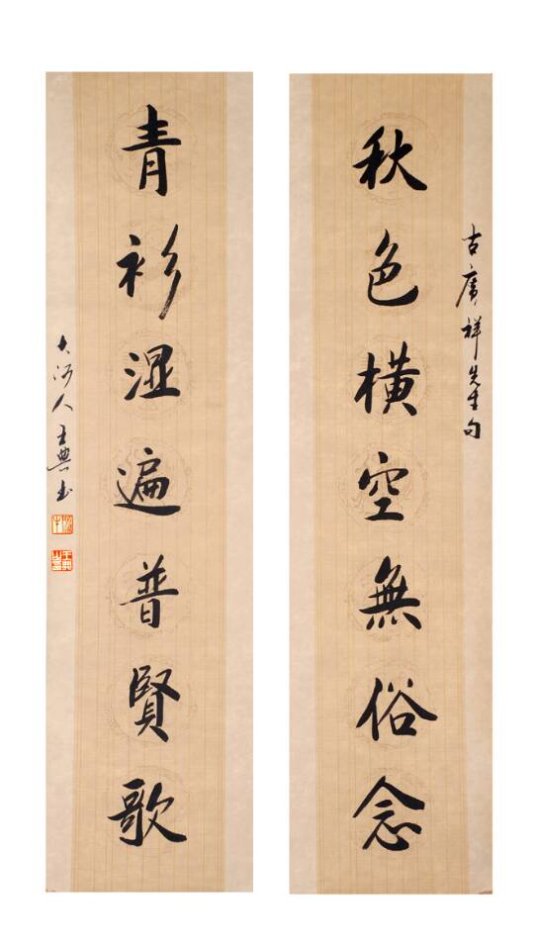 古広祥先生句
秋色橫空無俗念
青衫湿遍普賢歌
大河人王典书